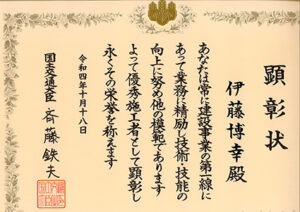 顕彰状
伊藤博幸殿
あなたは常に建設事業の第一線に
あって業務に精励し技術・技能の
向上に努め他の模範であります
よって優秀施工者として顕彰し
永くその栄誉を称えます
令和四年十月十八日
国土交通大臣 斉藤鉄夫